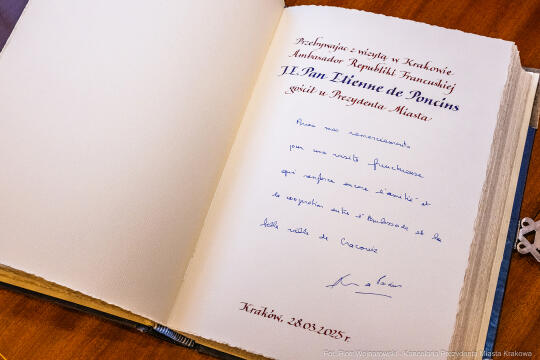 Przebywając z wizytą w Krakowie
Ambasador Republiki Francuskiej
J.E. Pan Etienne de Poncins
gościł u Prezydenta Miasta
Avec mes remerciements
pour une visite fructueuse
qui renforce encore l'amitié et
la coopération entre l'Ambassade et la
belle ville de Cracovie
Kraków, 28.03.2025 r.
Fot. Piotr Wojnarowski - Kancelaria Prezydenta Miasta Krakowa